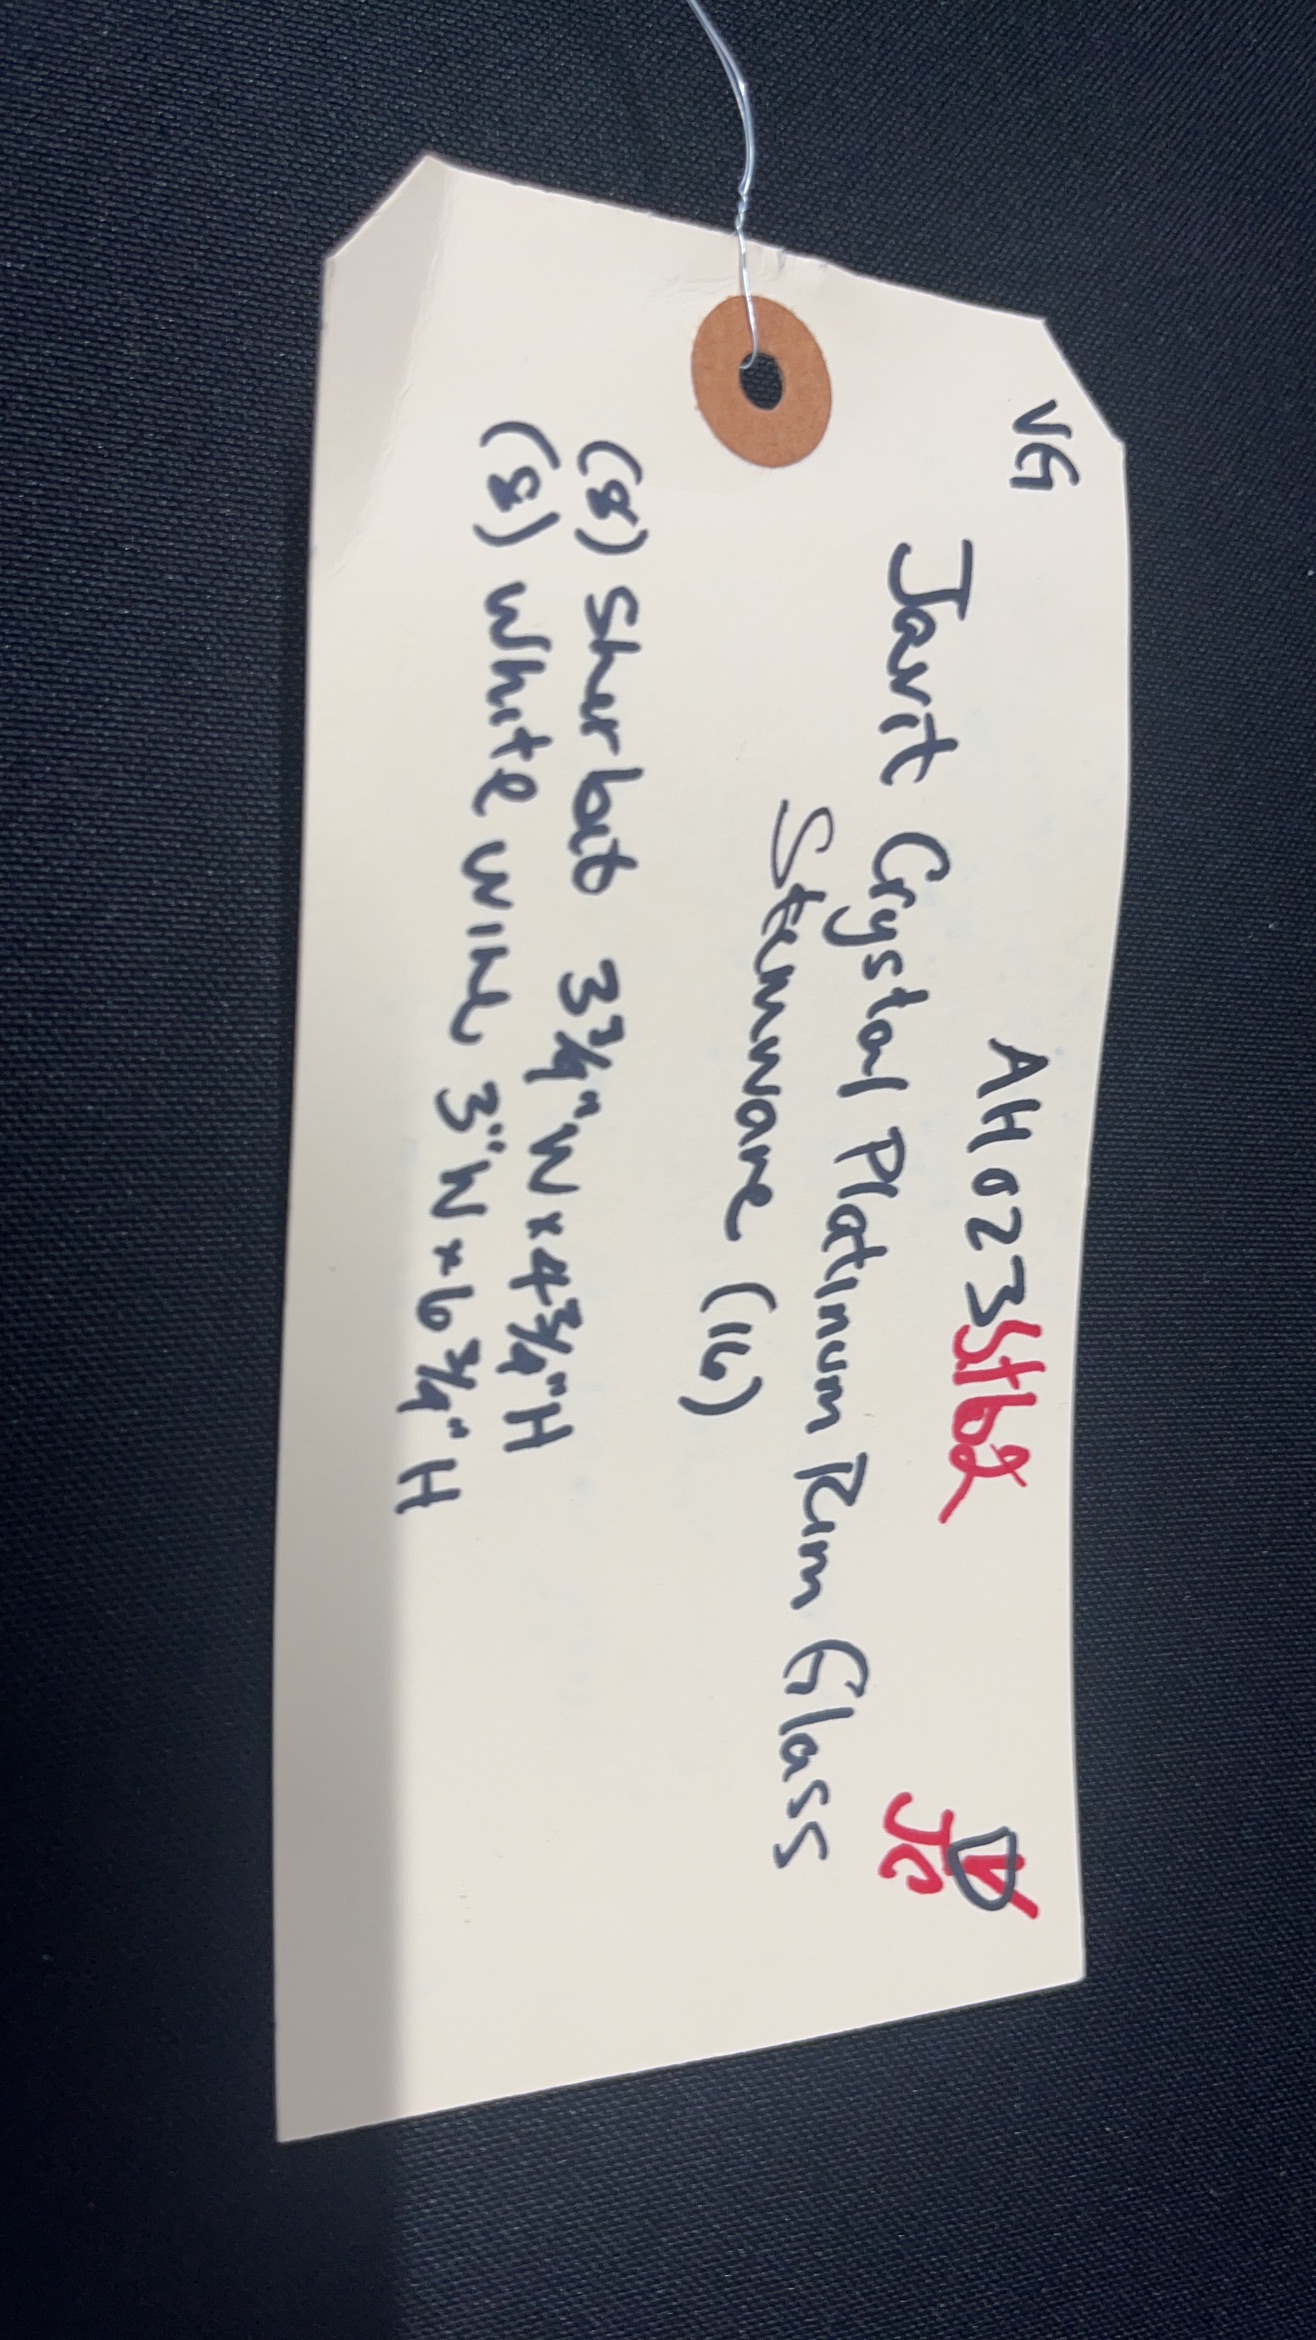 VG AH023St62
Javit Crystal Platinum Rim Glass
Stemware (16)
(8) Sherbat 3 3/4" W x 4 3/4" H
(8) White Wine 3" W x 6 3/4" H
JC